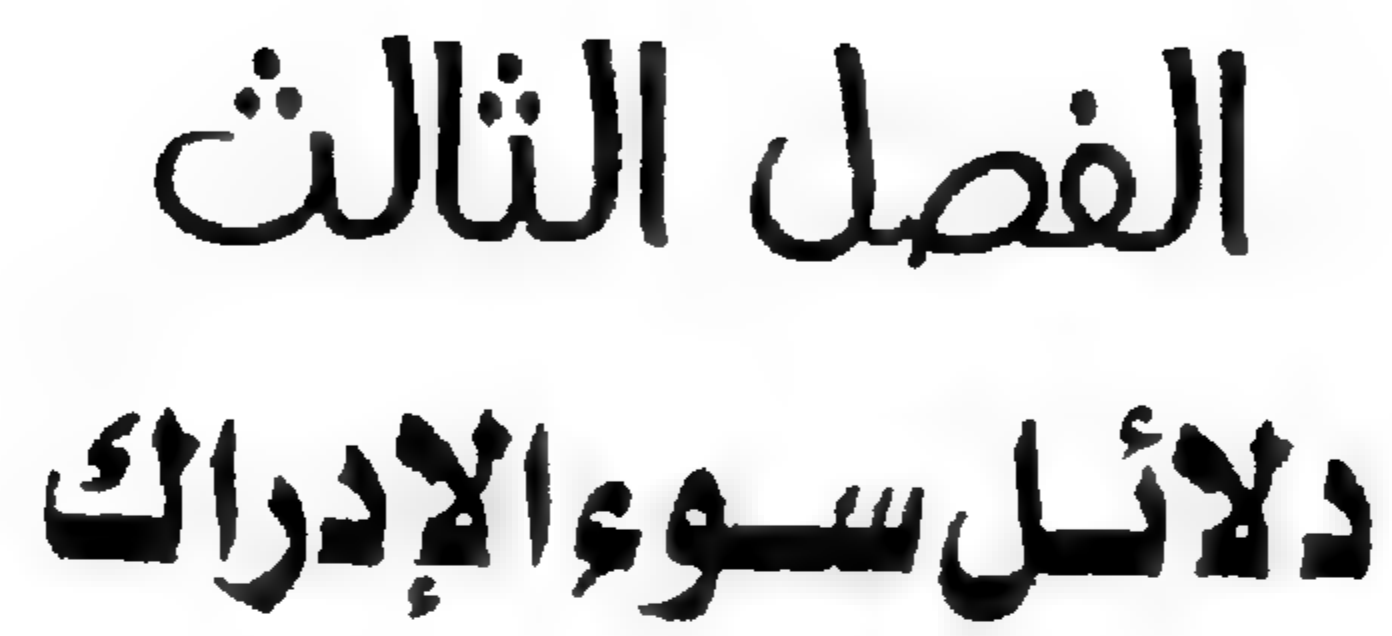 الفصل الثالث
دلائل سوء الإدراك